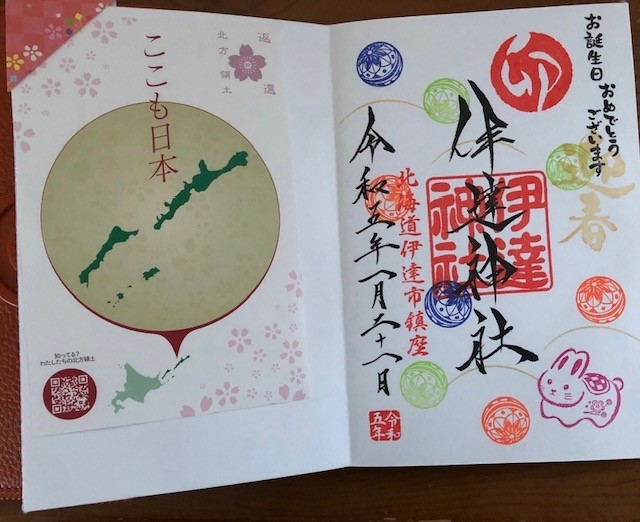 ここも日本
北方領土
返還
知ってる?
わたしたちの北方領土
お誕生日
おめでとう
ございます
迎春
伊達神社
伊達
神社
北海道伊達市鎮座
令和五年一月二十八日
令和
五年